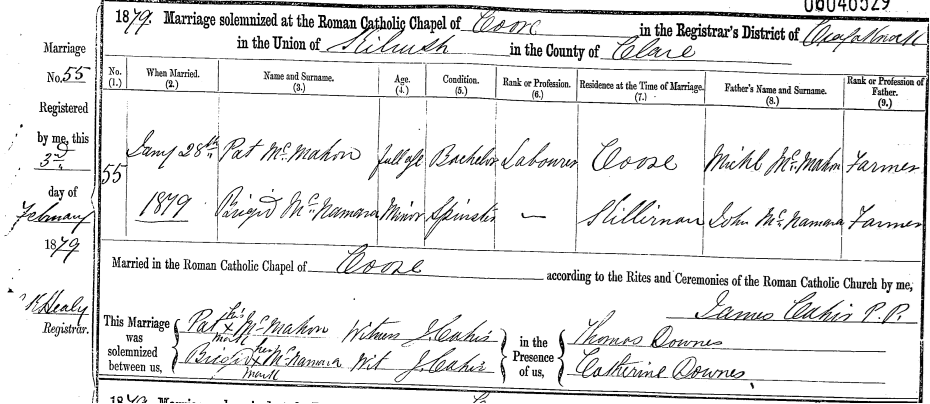 06046529
1879. Marriage solemnized at the Roman Catholic Chapel of Coose in the Registrar's District of
in the Union of Kilrush in the County of Clare
Marriage
No. 55
Registered
by me, this
3rd
day of
February
1879
K Healy
Registrar.
No. (1.) When Married. (2.) Name and Surname. (3.) Age. (4.) Condition. (5.) Rank or Profession. (6.) Residence at the Time of Marriage. (7.) Father's Name and Surname. (8.) Rank or Profession of Father. (9.)
55 Jany 28th Pat McMahon full age Bachelor Labourer Coose Michl McMahon Farmer
1879 Brigid McNamara Minor Spinster — John McNamara Farmer
Married in the Roman Catholic Chapel of Coose according to the Rites and Ceremonies of the Roman Catholic Church by me,
James Cahir P.P.
This Marriage was solemnized between us,
Pat his x mark McMahon Witness J. Cahir
Brigid her x mark McNamara Wit J. Cahir
in the Presence of us,
Thomas Downes
Catherine Downes